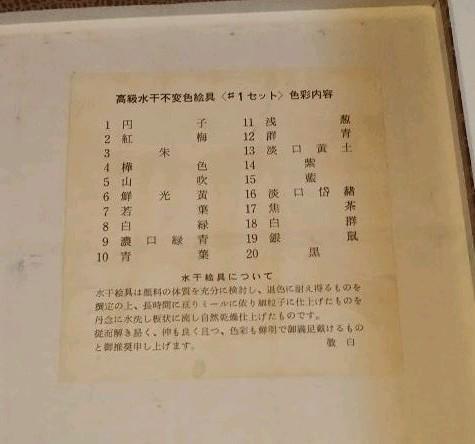 高級水干不変色絵具〈♯1セット〉色彩内容
1 円子 11 浅葱
2 紅梅 12 群青
3 朱 13 淡口黄土
4 樺色 14 紫
5 山吹 15 藍
6 鮮光黄 16 淡口岱赭
7 若葉 17 焦茶
8 白緑 18 白群
9 濃口緑青 19 銀鼠
10 青葉 20 黒
水干絵具について
水干絵具は顔料の体質を充分に検討し、退色に耐え得るものを
撰定の上、長時間に亘りミールに依り細粒子に仕上げたものを
丹念に水洗し板状に流し自然乾燥仕上げたものです。
従而解き易く、伸も良く且つ、色彩も鮮明で御満足戴けるもの
と御推奨申し上げます。 敬白